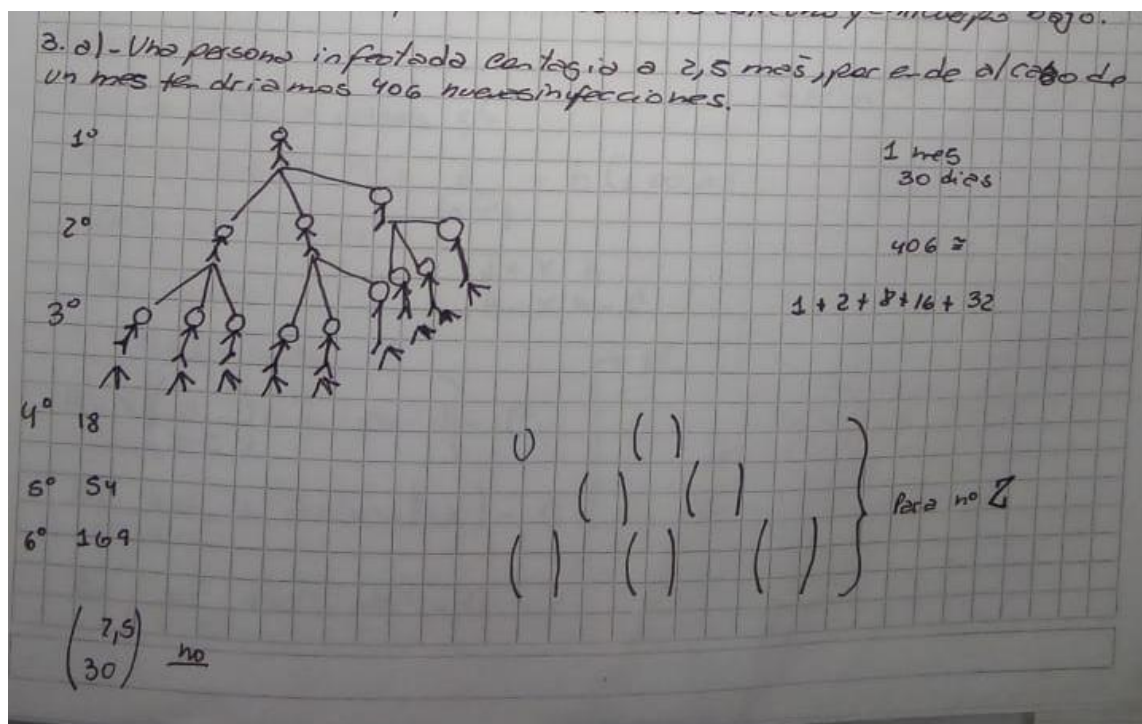 bajo.
3. a) - Una persona infectada contagia a 2,5 mas, por ende al cabo de
un mes tendriamos 406 nuevas infecciones.
1°
1 mes
30 dias
2°
406 ≅
3°
1 + 2 + 8 + 16 + 32
4° 18
5° 54
Para n° Z
6° 169
( 2,5
30 ) no